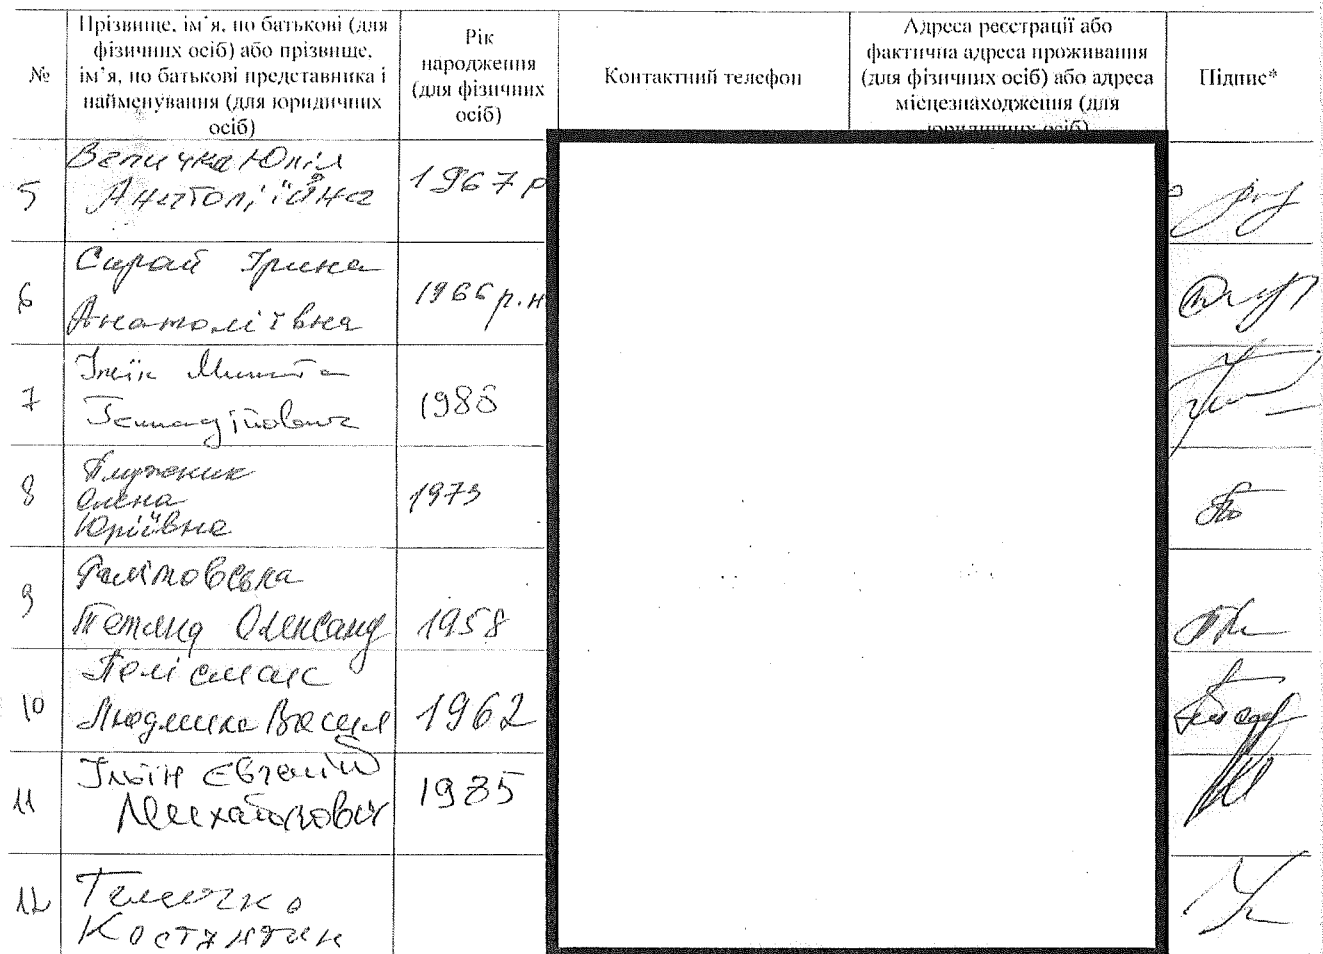 №
Прізвище, ім'я, по батькові (для
фізичних осіб) або прізвище,
ім'я, по батькові представника і
найменування (для юридичних
осіб)
Рік
народження
(для фізичних
осіб)
Контактний телефон
Адреса реєстрації або
фактична адреса проживання
(для фізичних осіб) або адреса
місцезнаходження (для
юридичних осіб)
Підпис*
5
Величка Юлія
Анатоліївна
1967 р
6
Сирай Ірина
Анатоліївна
1966 р.н
7
Микита
Геннадійович
1988
8
Плужник
Олена
Юріївна
1973
9
Тетяна Олександ
1958
10
Людмила Васил
1962
11
Ільїн Євгеній
Михайлович
1985
12
Костянтин